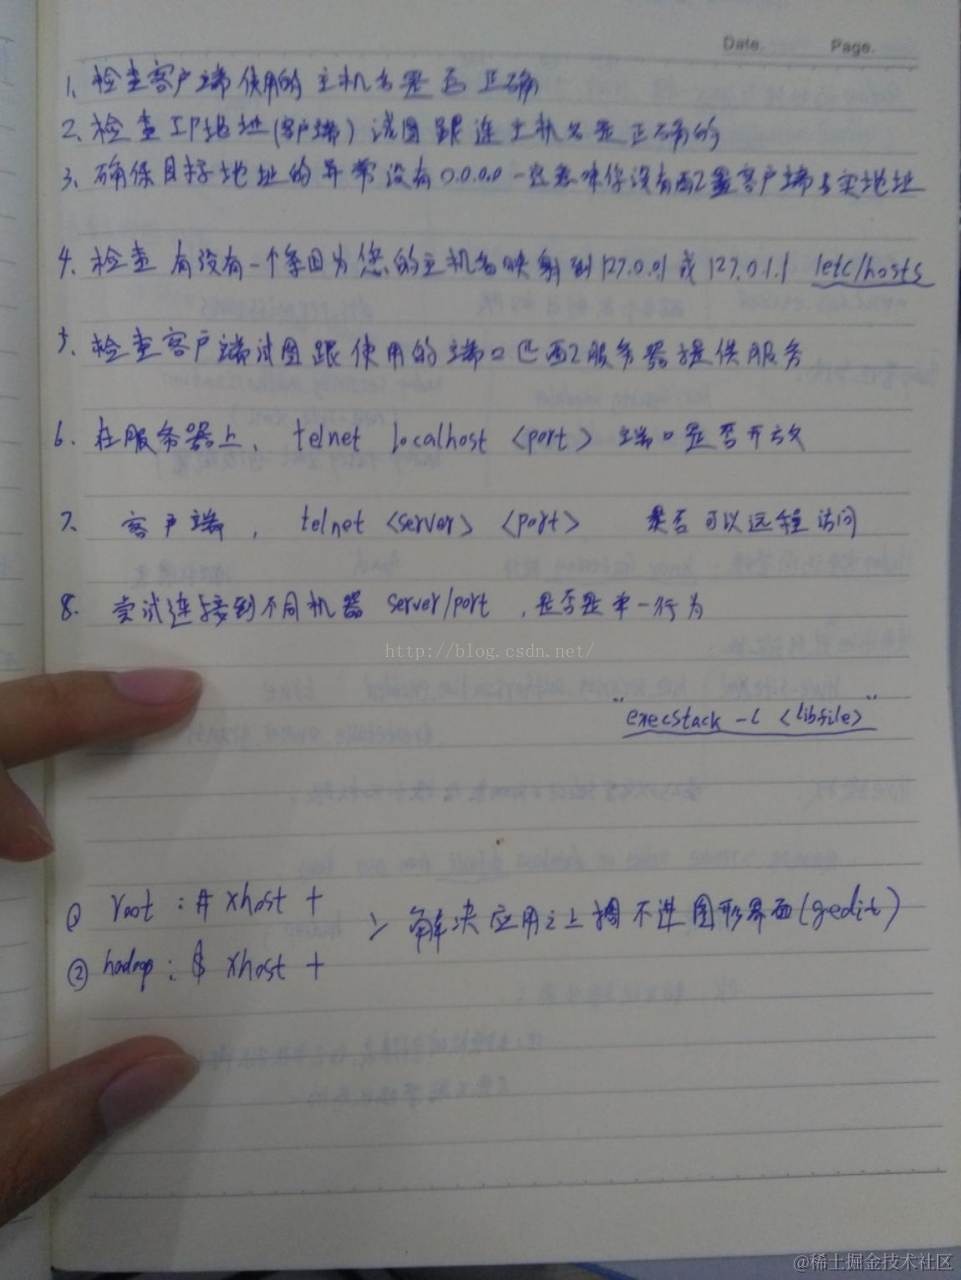 Date. Page.
1、检查客户端使用的主机名是否正确
2、检查IP地址(客户端)试图跟连主机名是正确的
3、确保目标地址的异常没有0.0.0.0一定意味你没有配置客户端与实地址
4、检查有没有一个条目为您的主机名映射到127.0.0.1或127.0.1.1 /etc/hosts
5、检查客户端试图跟使用的端口匹配服务器提供服务
6、在服务器上, telnet localhost <port> 端口是否开放
7、客户端, telnet <server> <port> 是否可以远程访问
8、尝试连接到不同机器 server/port , 是否是单一行为
http://blog.csdn.net/
"execstack -c <libfile>"
① root : # xhost +
> 解决应用之上调不进图形界面(gedit)
② hadoop : $ xhost +
@稀土掘金技术社区